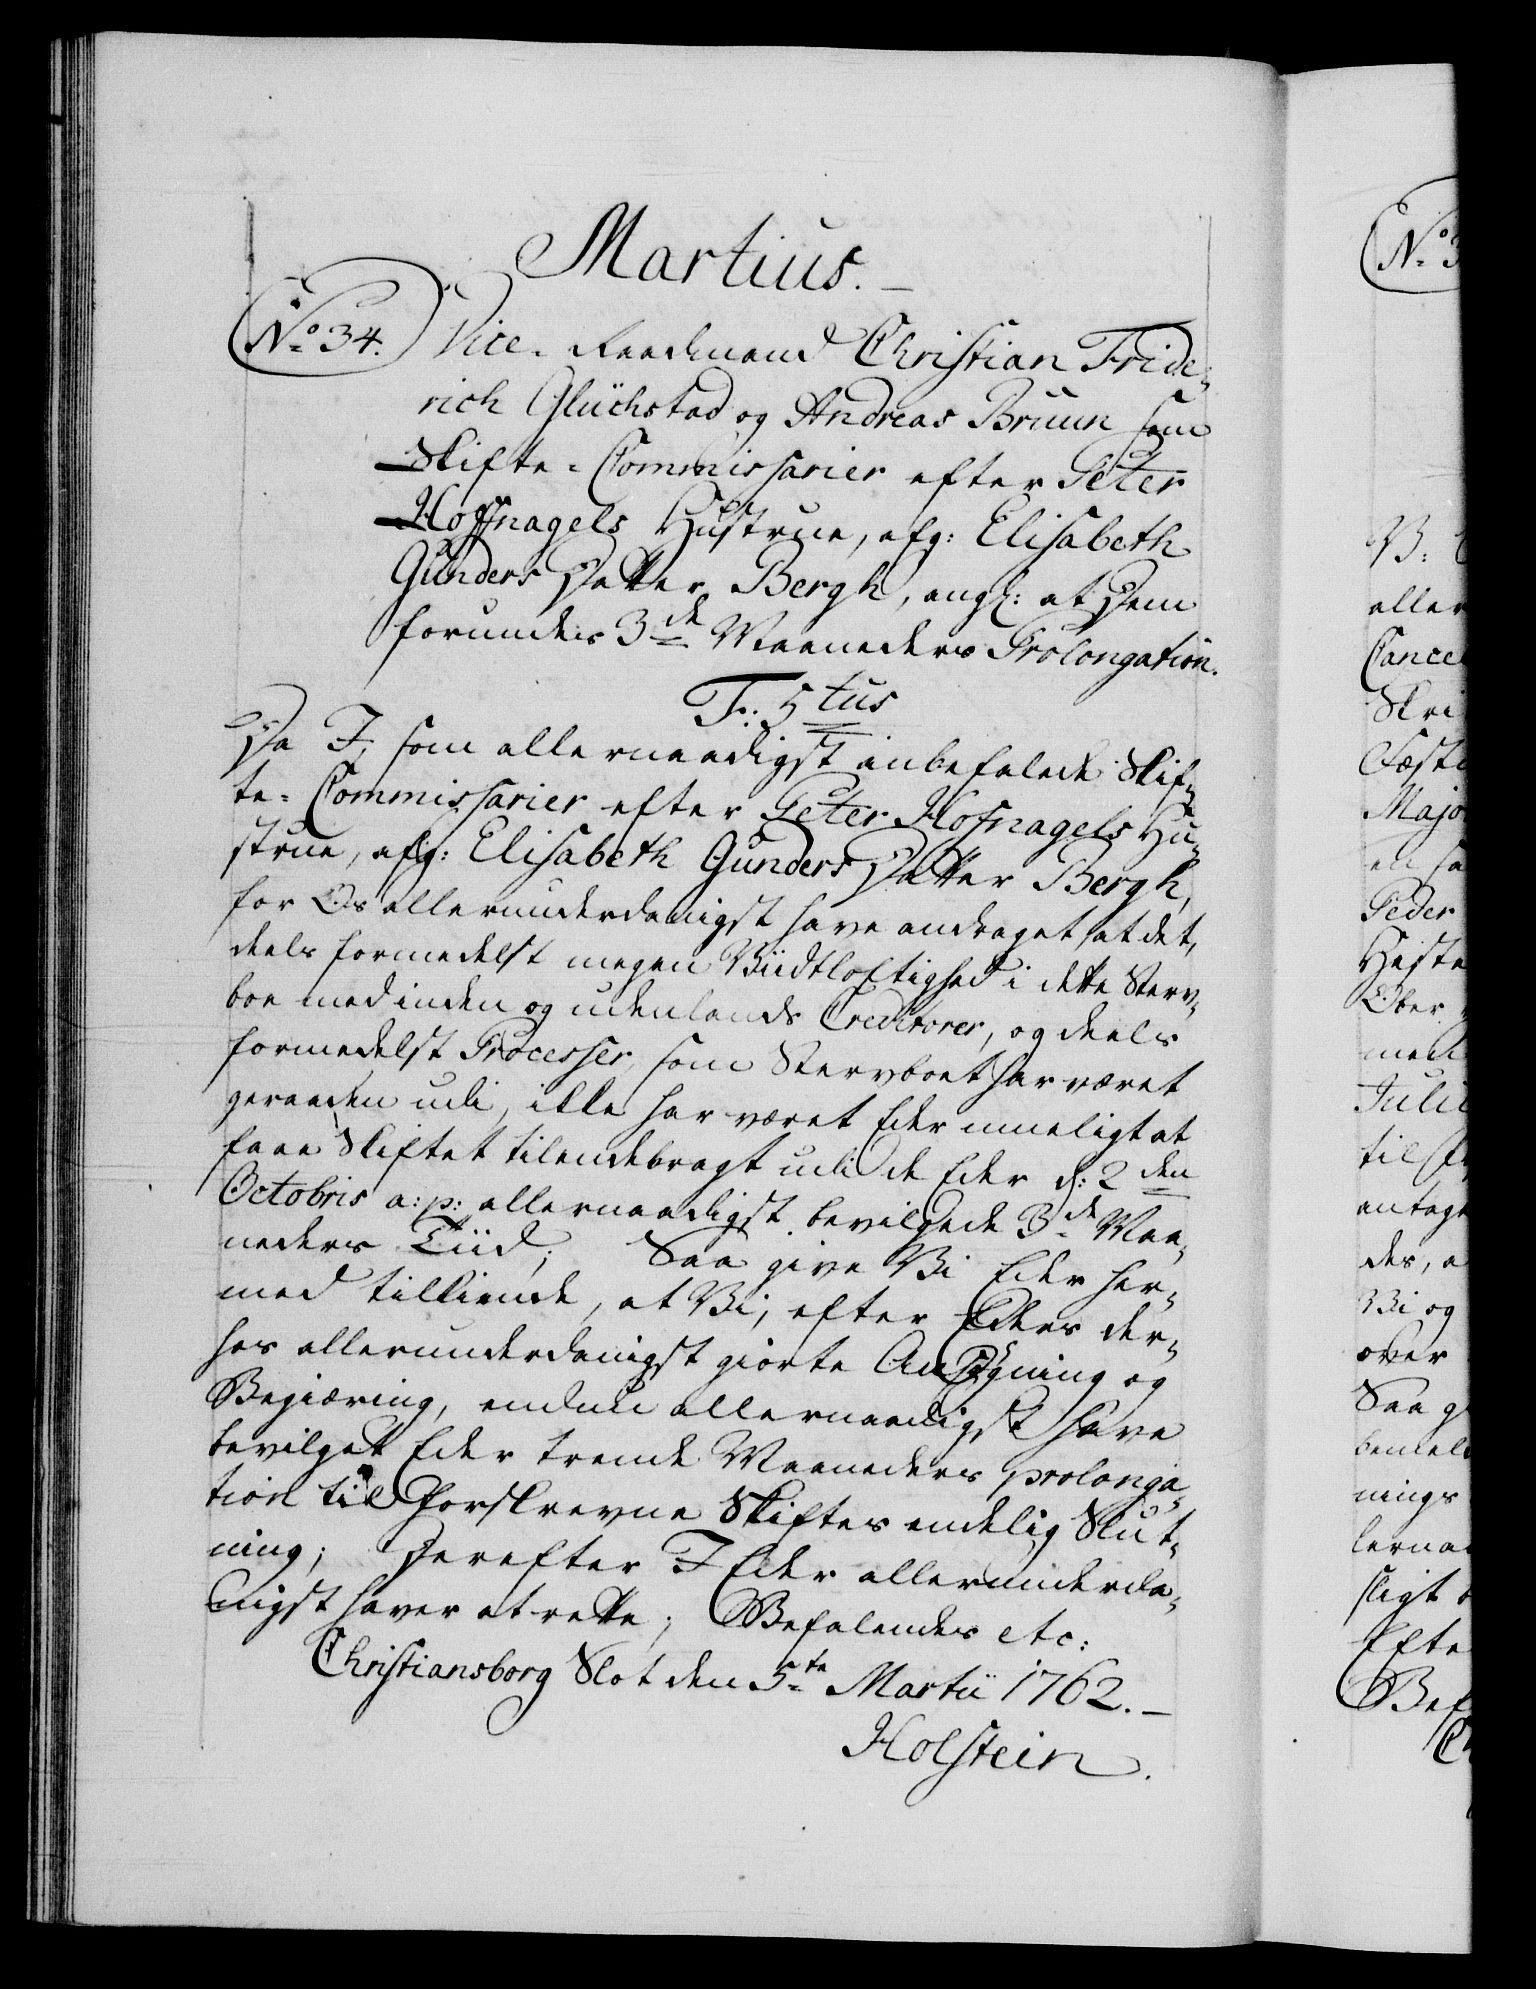 Martius.
No 34. Vice-Raadmand Christian Fride-
rich Glückstad og Andreas Bruun som
Skifte-Commissarier efter Peter
Hoffnagels Hustrue, afg: Elisabeth
Gunders Datter Bergh, angl: at Dem
forundes 3de Maaneders Prolongation.
F: 5tus
Da I, som allernaadigst anbefalede Skif-
te-Commissarier efter Peter Hofnagels Hu-
strue, afg: Elisabeth Gunders Datter Bergh,
for Os allerunderdanigst have andraget, at det,
deels formedelst megen Viidtløftighed i dette Sterv-
boe med inden og udenlands Creditorer, og deels
formedelst Processer, som Stervboet har været
geraaden udi, ikke har været Eder mueligt at
faae Skiftet tilendebragt udi de Eder d: 2den
Octobris a: p: allernaadigst bevilgede 3de Maa-
neders Tiid; Saa give Vi Eder her-
med tilkiende, at Vi, efter Eders der-
hos allerunderdanigst giorte Ansøgning og
Begiæring, endnu allernaadigst have
bevilget Eder trende Maaneders prolonga-
tion til forskrevne Skiftes endelig Slut-
ning; Derefter I Eder allerunderda-
nigst haver at rette; Befalendes etc:
Christiansborg Slot den 5te Martii 1762.
Holstein.
No 3
V:
aller
Cancel
Skri
Fæste
Majo
en sa
Peder
Heste
Ober
med
Julii
til
antage
des, a
Vi og
over
Saa g
bemel
nings
lernaa
sligt
Efte
Bef
Ch